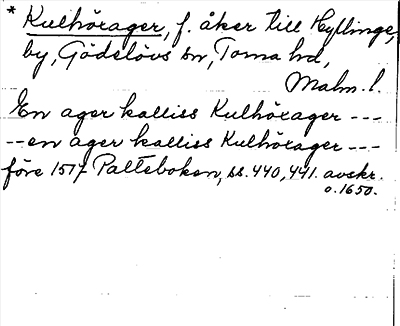 * Kulhöxager, f. åker till Hyllinge,
by, Gödelövs sn, Torna hd,
Malm. l.
En ager kalliss Kulhöxager ---
--en ager kalliss Kulhöxager ---
före 1517 Palteboken, ss. 440, 441. avskr.
o. 1650.